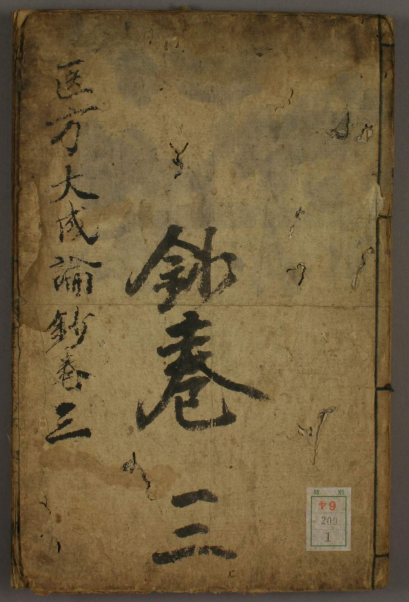 医方大成論鈔巻三
鈔巻三
19
209
1